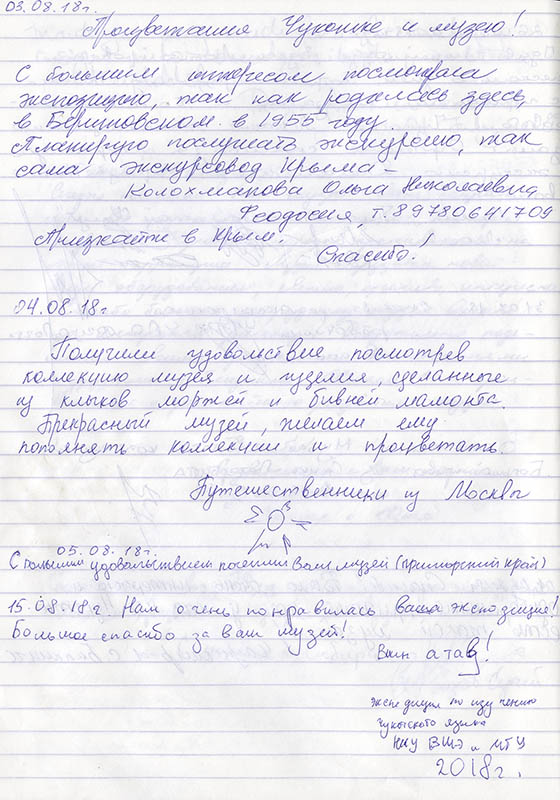 03.08.18г.
Процветания Чукотке и музею!
С большим интересом посмотрела
экспозицию, так как родилась здесь,
в Беринговском в 1955 году.
Планирую послушать экскурсию, так
сама экскурсовод Крыма –
Колохманова Ольга Николаевна,
Феодосия, т. 89780641709
Приезжайте в Крым.
Спасибо!
04.08.18г
Получили удовольствие посмотрев
коллекцию музея и изделия, сделанные
из клыков моржей и бивней мамонта.
Прекрасный музей, желаем ему
пополнять коллекции и процветать.
Путешественники из Москвы
05.08.18г.
С большим удовольствием посетили Ваш музей (Приморский край)
15.08.18г Нам очень понравилась ваша экспозиция!
Большое спасибо за ваш музей!
атав!
экспедиция по изучению
чукотского языка
НИУ ВШЭ и МГУ
2018г.